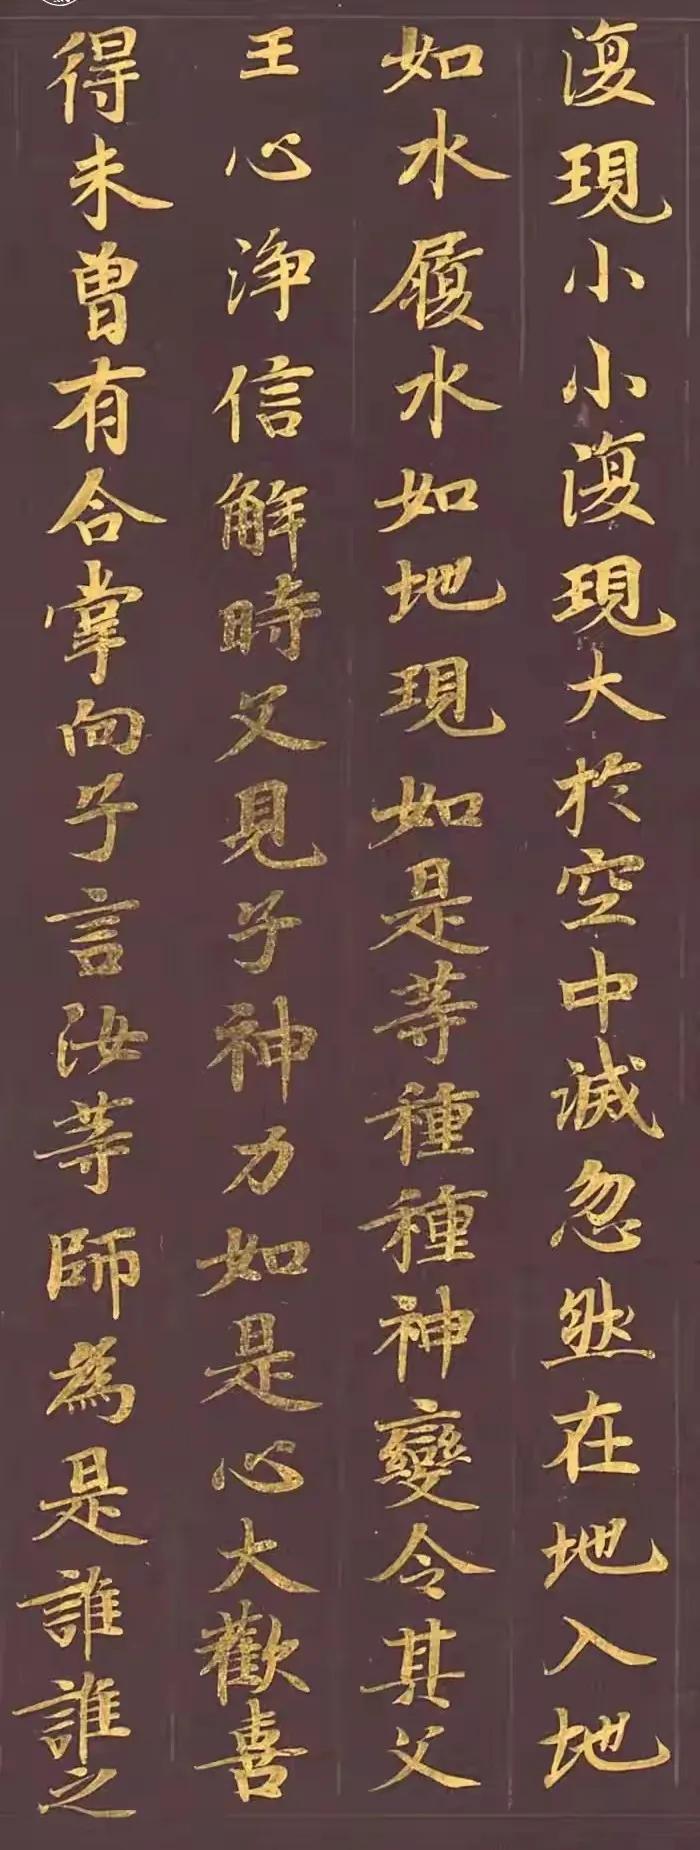 復現小小復現大於空中滅忽然在地入地
如水履水如地現如是等種種神變令其父
王心浄信解時父見子神力如是心大歡喜
得未曾有合掌向子言汝等師為是誰誰之